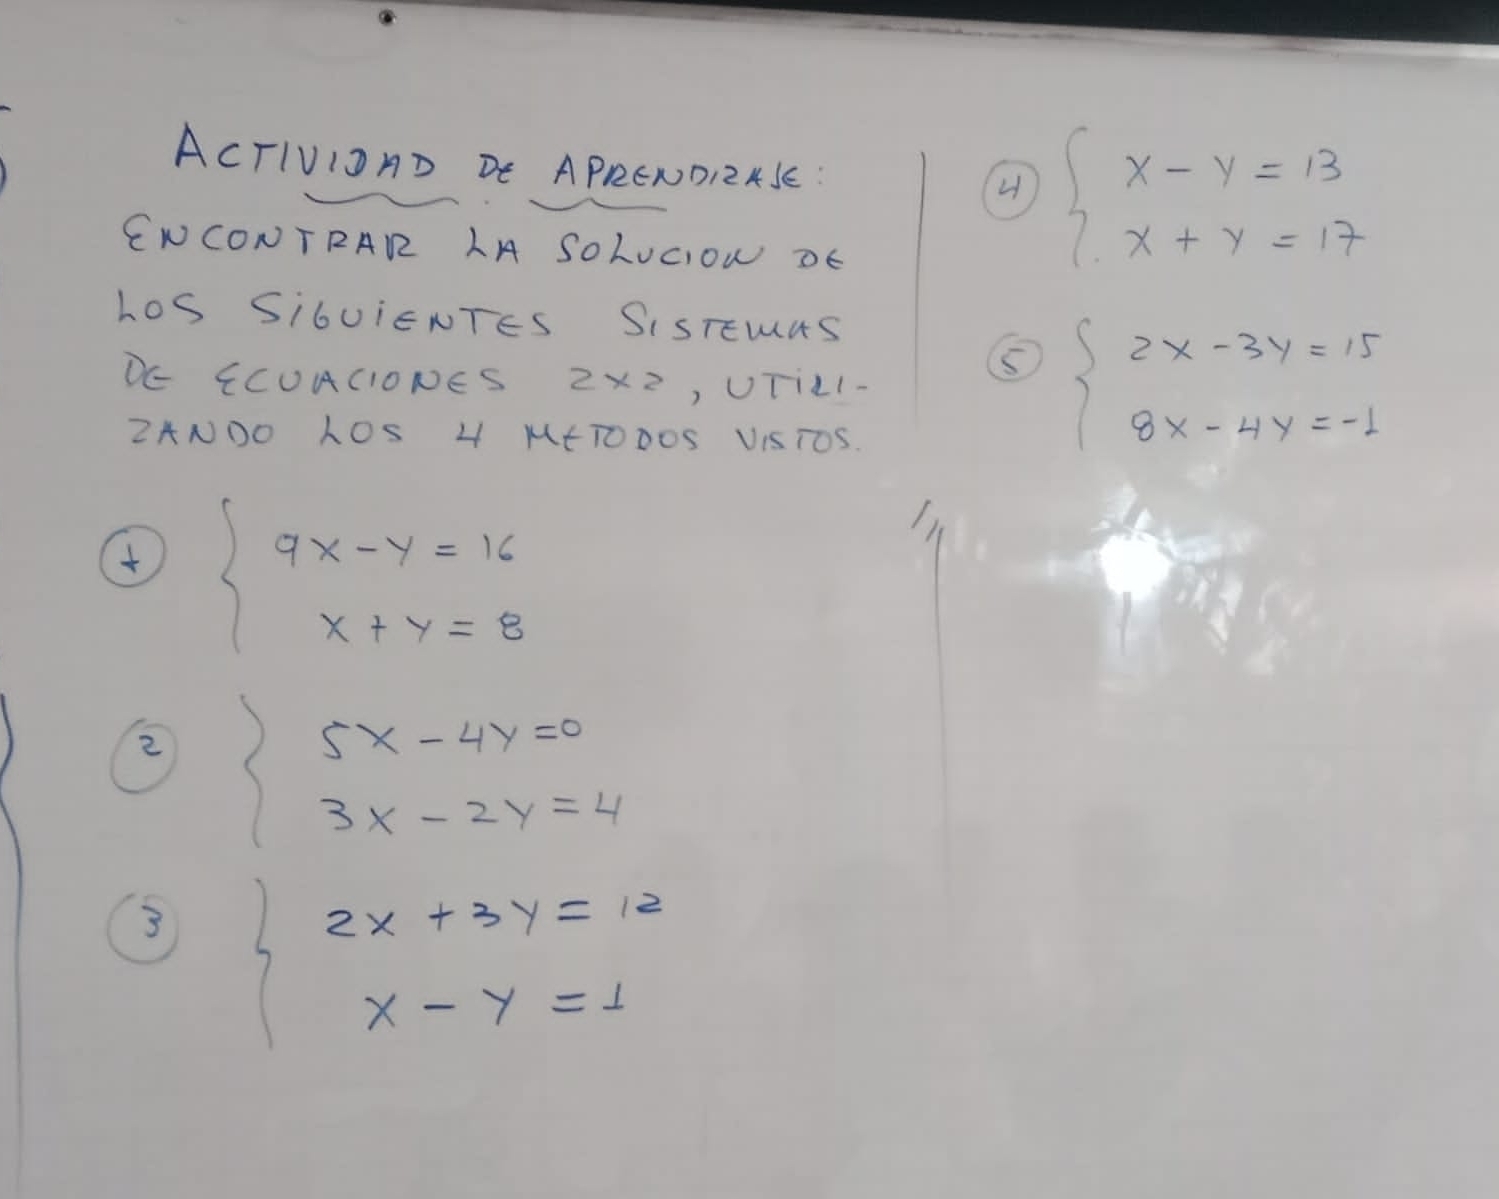 ACTIVIDAD DE APRENDIZAJE:
ENCONTRAR LA SOLUCION DE
LOS SIGUIENTES SISTEMAS
DE ECUACIONES 2x2, UTILI-
ZANDO LOS 4 METODOS VISTOS.
1 { 9x - y = 16
x + y = 8
2 { 5x - 4y = 0
3x - 2y = 4
3 { 2x + 3y = 12
x - y = 1
4 { x - y = 13
x + y = 17
5 { 2x - 3y = 15
8x - 4y = -1